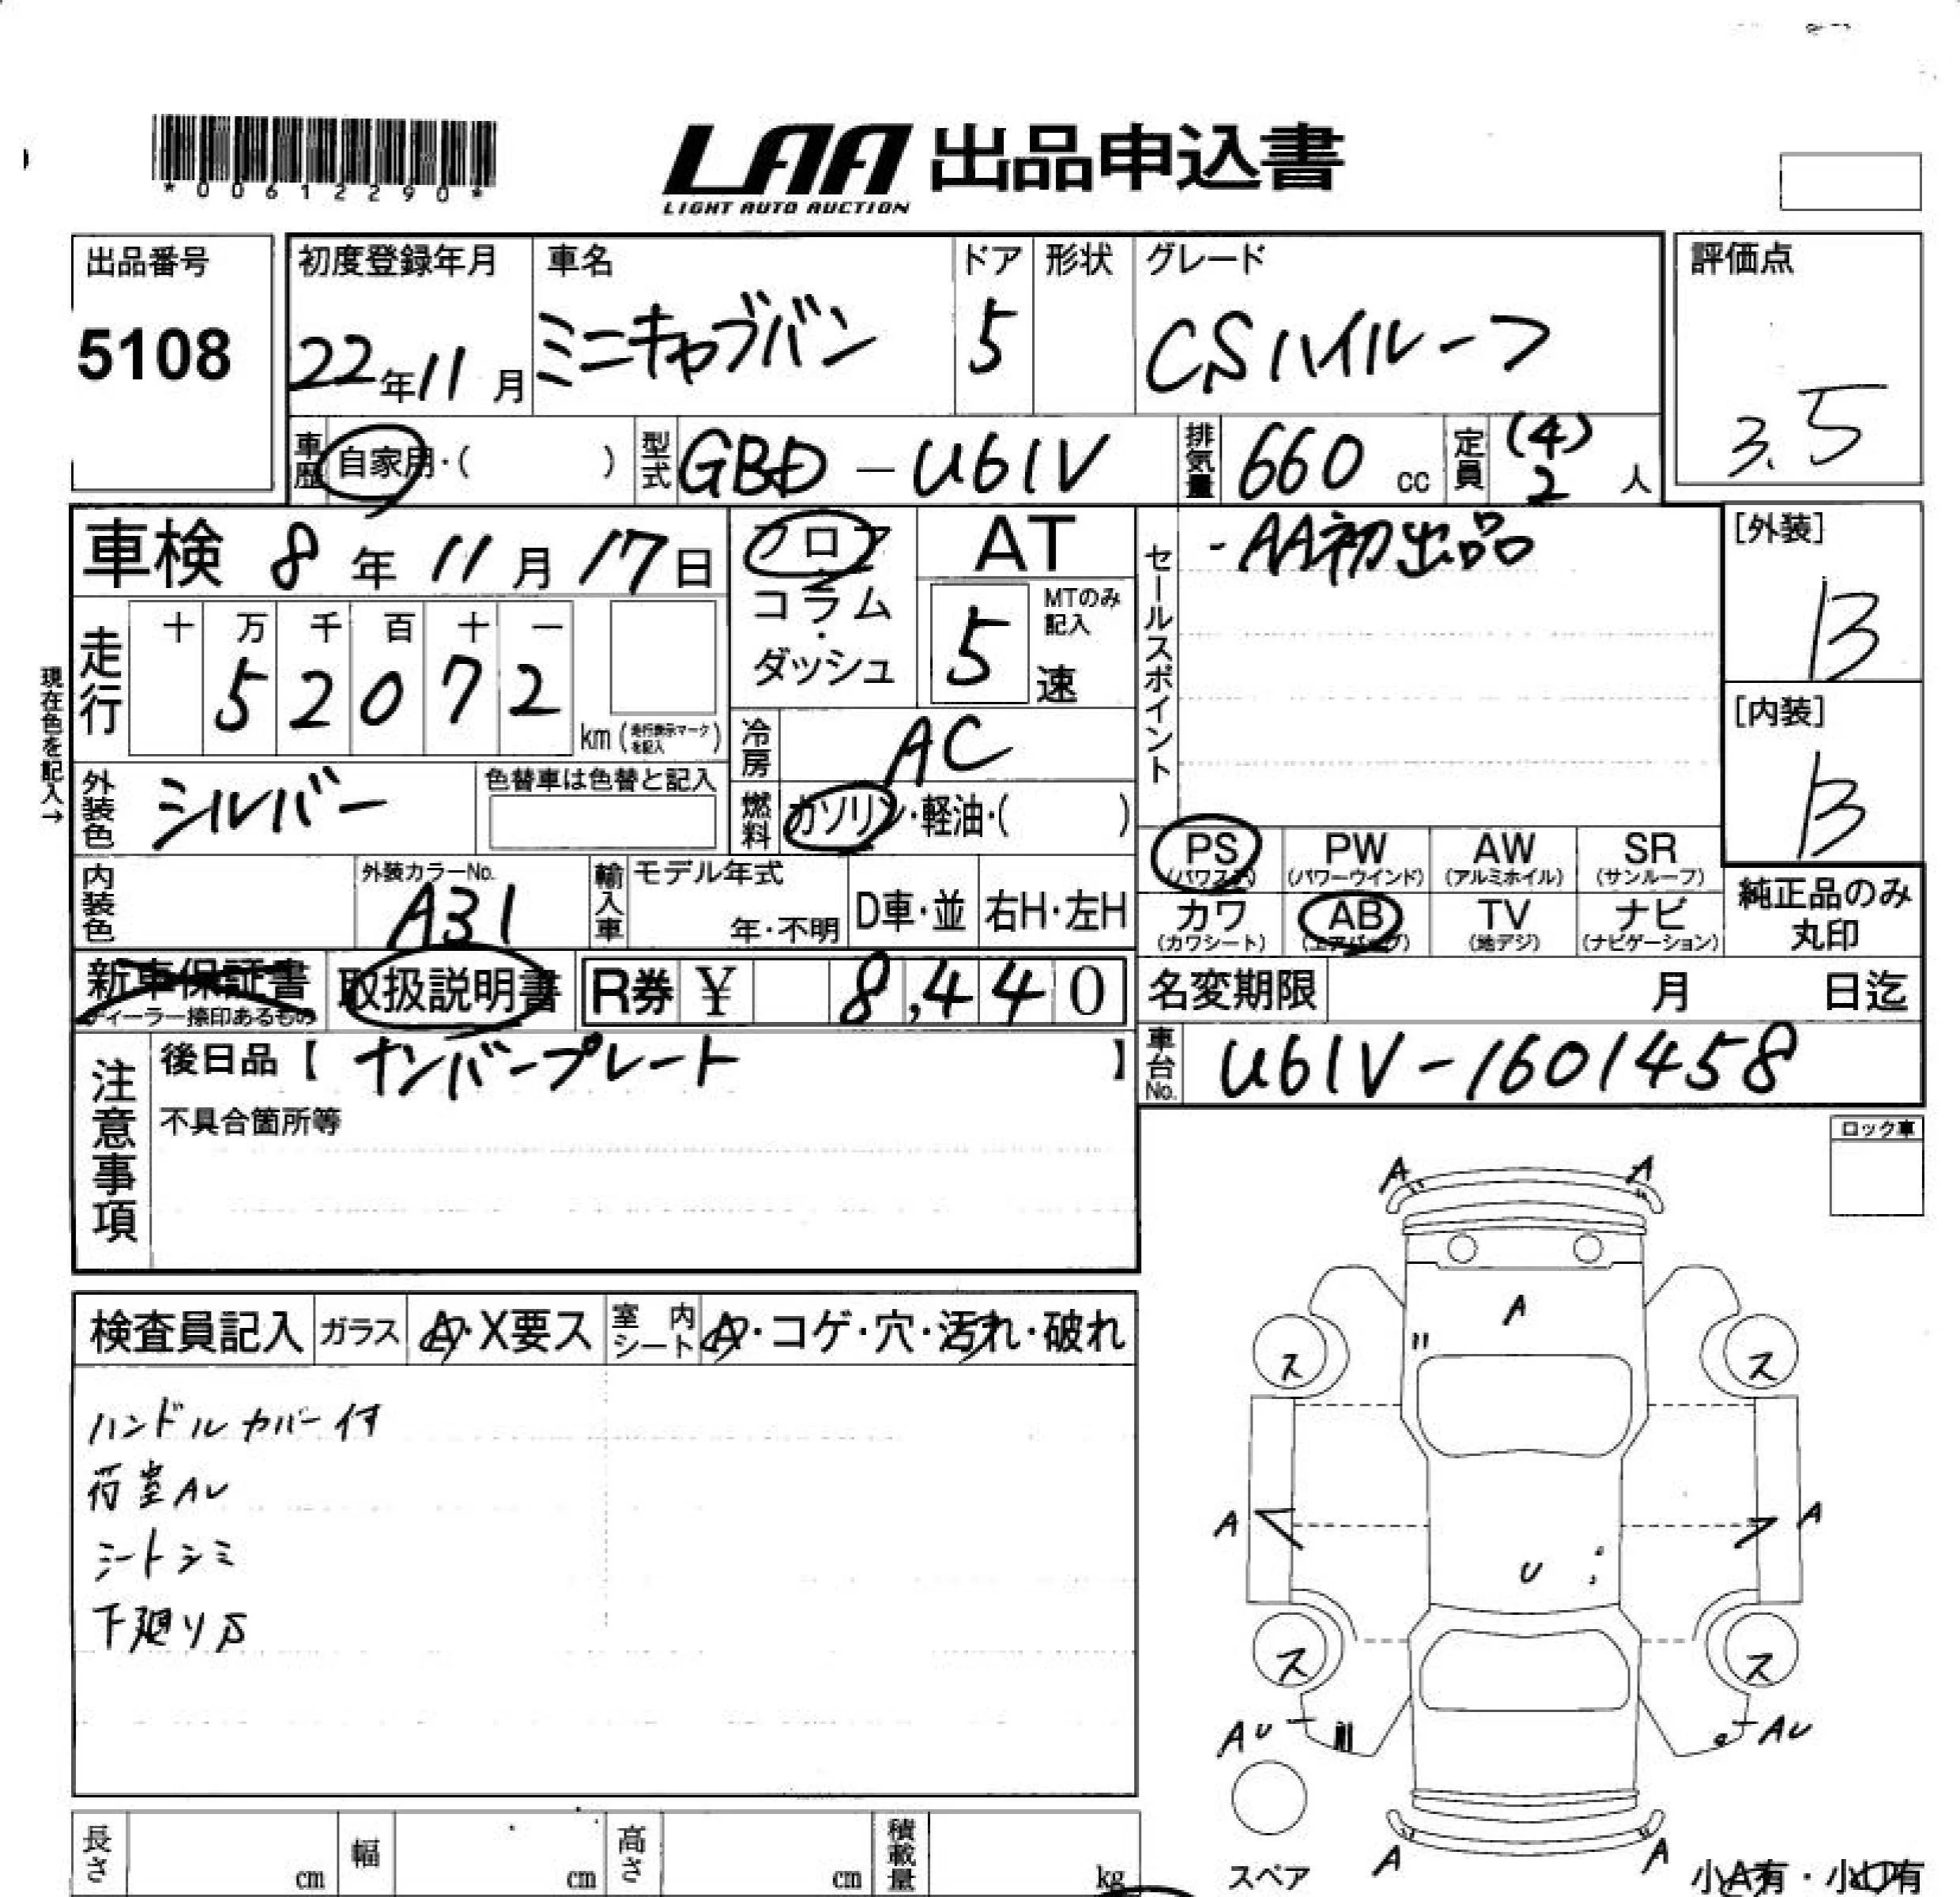 *00612290*
LAA 出品申込書
LIGHT AUTO AUCTION
出品番号
5108
初度登録年月
22年11月
車名
ミニキャブバン
ドア
5
形状
グレード
CSハイルーフ
評価点
3.5
車歴
自家用・( )
型式
GBD-U61V
排気量
660 cc
定員
(4)
2 人
車検 8年11月17日
フロア
コラム
・
ダッシュ
AT
5速
MTのみ
記入
セールスポイント
-AA初出品
[外装]
B
[内装]
B
現在色を記入→
走行
十 万 千 百 十 一
5 2 0 7 2
km (走行表示マークを記入)
冷房
AC
外装色
シルバー
色替車は色替と記入
燃料
ガソリン・軽油・( )
PS
(パワステ)
PW
(パワーウインド)
AW
(アルミホイル)
SR
(サンルーフ)
内装色
外装カラーNo.
A31
輸入車
モデル年式
年・不明
D車・並
右H・左H
カワ
(カワシート)
AB
(エアバッグ)
TV
(地デジ)
ナビ
(ナビゲーション)
純正品のみ
丸印
新車保証書
ディーラー捺印あるもの
取扱説明書
R券 ¥ 8,440
名変期限 月 日迄
車台No.
U61V-1601458
注意事項
後日品【 ナンバープレート 】
不具合箇所等
ロック車
検査員記入
ガラス
A・X要ス
室内シート
A・コゲ・穴・汚れ・破れ
ハンドルカバー付
荷室AU
シートシミ
下廻りS
A A
A
ス ス
A A
U
ス ス
AU AU
A A
スペア
小A有・小U有
長さ cm
幅 cm
高さ cm
積載量 kg